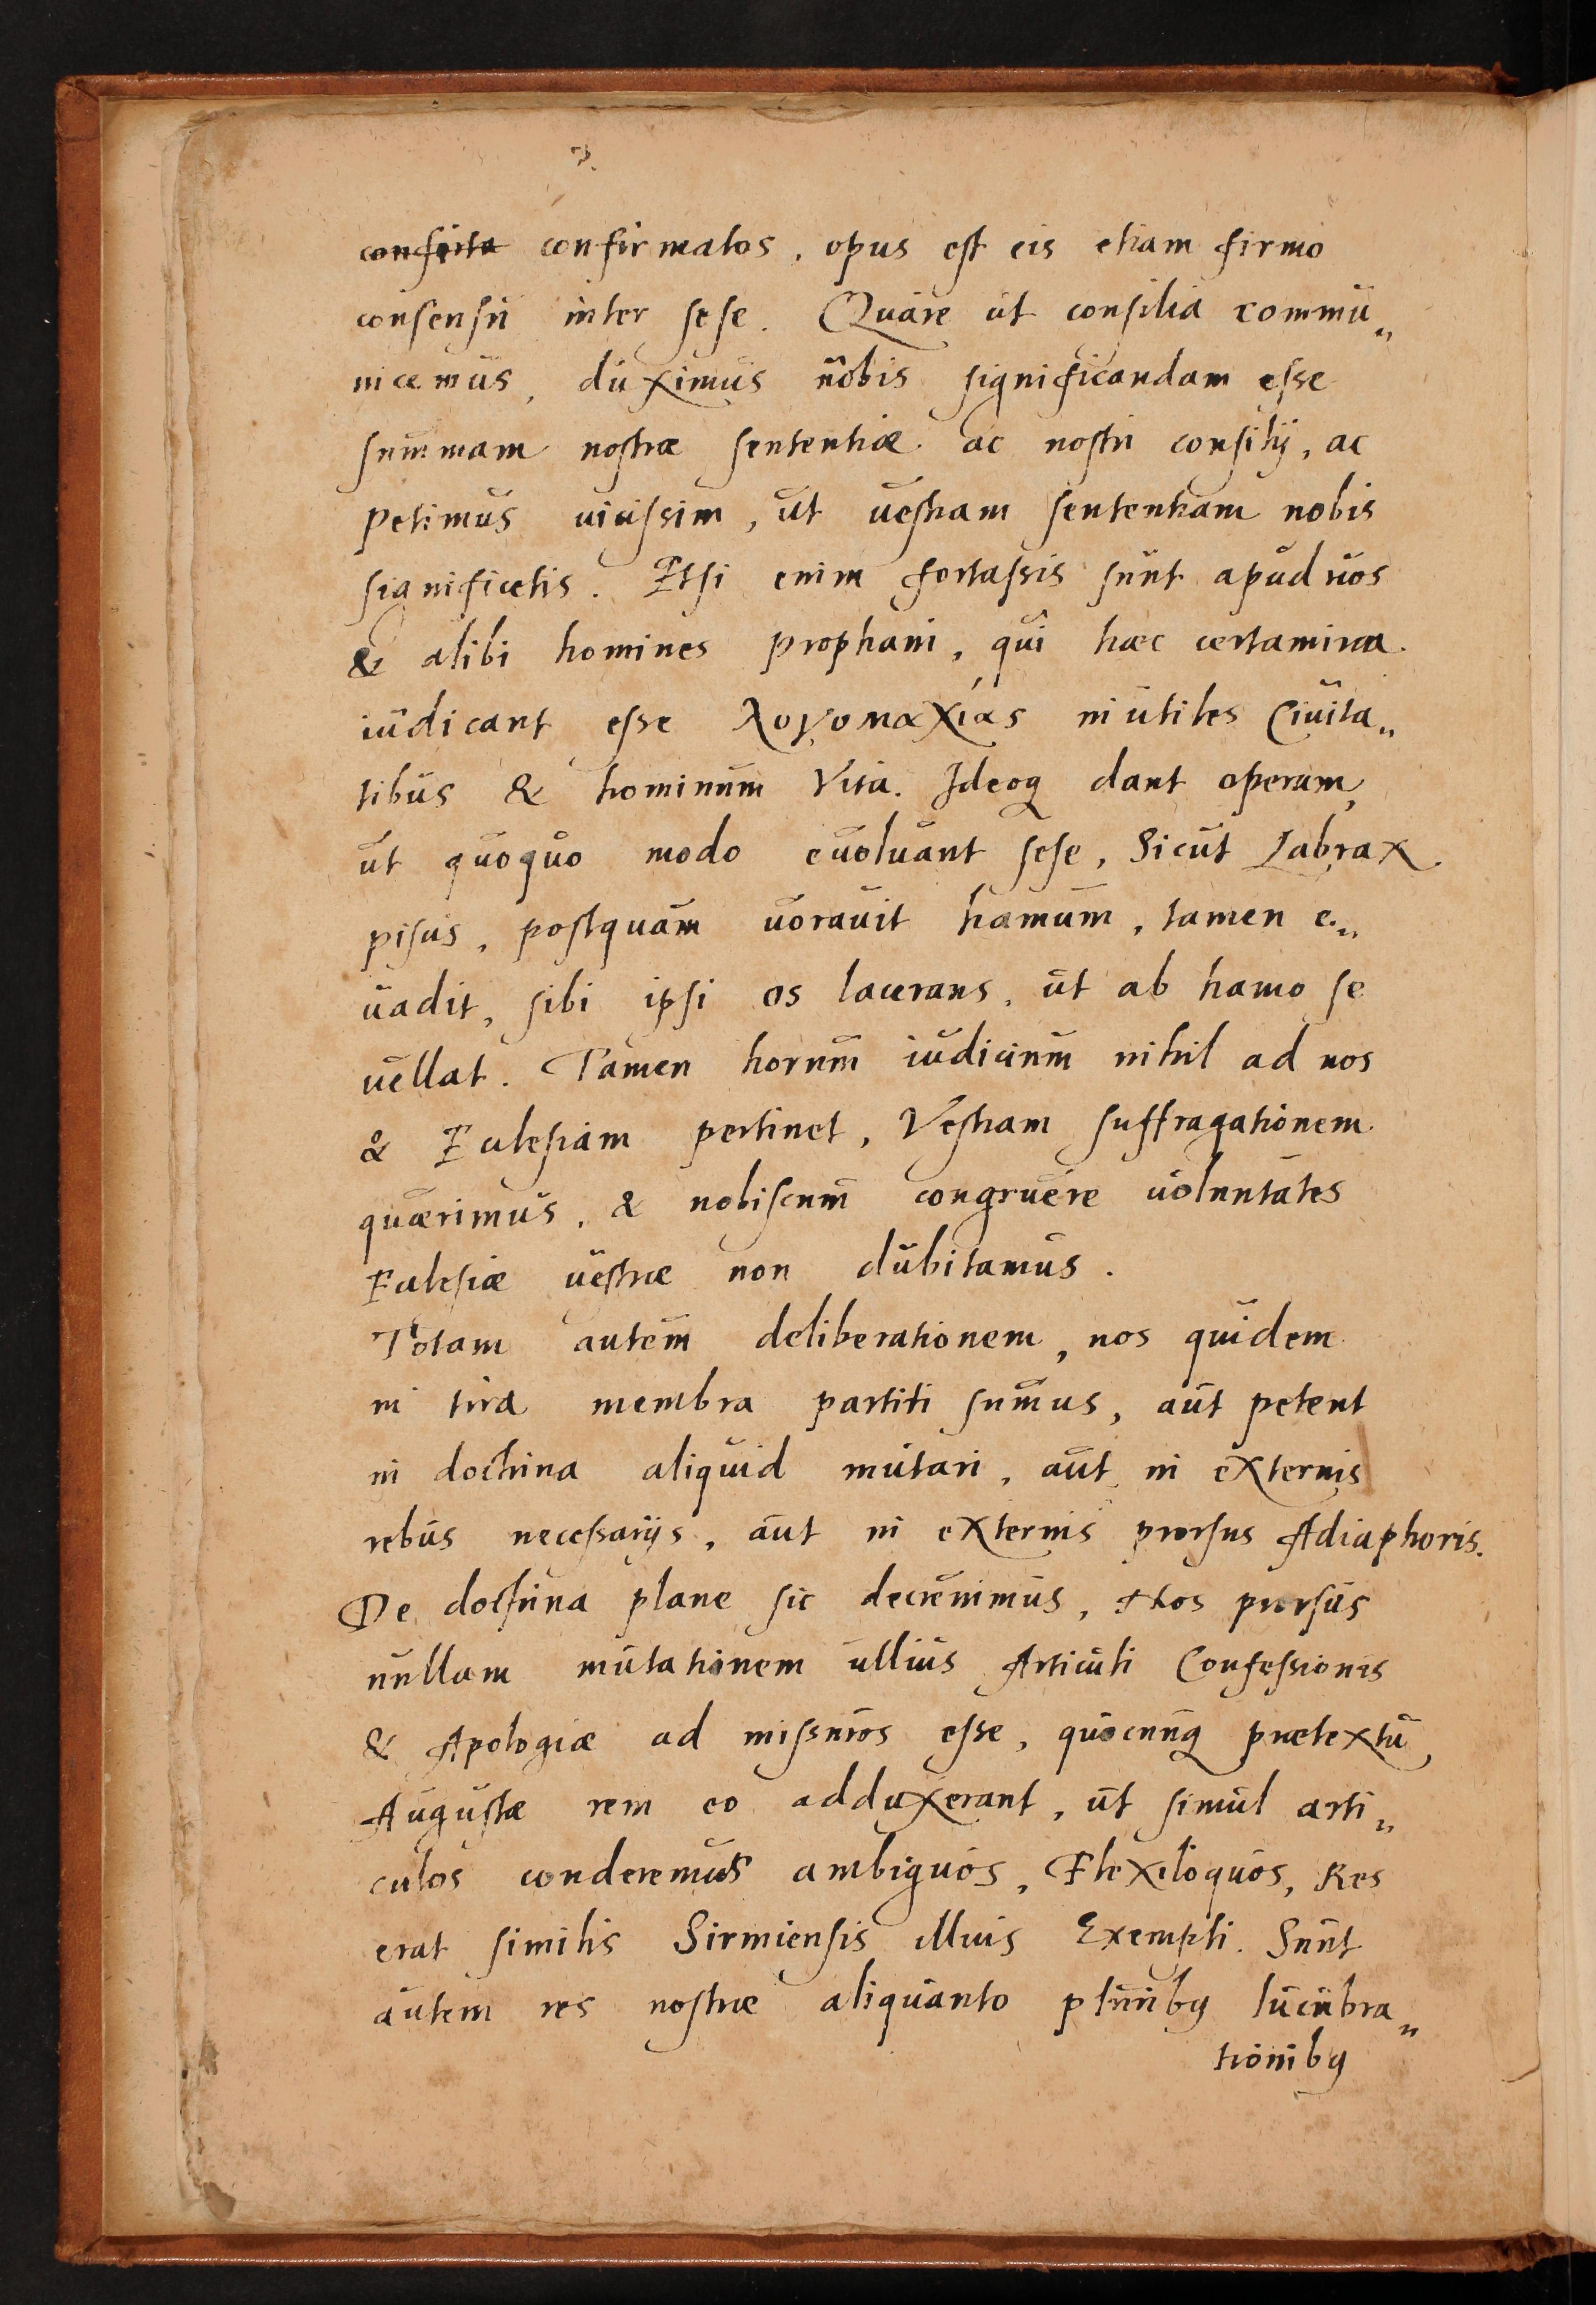 confirta confirmatos, opus est eis etiam firmo
consensu inter sese. Quare ut consilia commu„
nicemus, duximus uobis significandam esse
summam nostræ sententiæ ac nostri consilij, ac
petimus uicissim, ut uestram sententiam nobis
significetis. Etsi enim fortassis sunt apud uos
& alibi homines prophani, qui hæc certamina
iudicant esse λογομαχίας inutiles Ciuita„
tibus & hominum Vita. Ideoq dant operam,
ut quoquo modo euoluant sese, Sicut Labrax
piscis, postquam uorauit hamum, tamen e„
uadit, sibi ipsi os lacerans, ut ab hamo se
uellat. Tamen horum iudicium nihil ad nos
& Eclesiam pertinet, Vestram suffragationem
quærimus, & nobiscum congruere uoluntates
Eclesiæ uestræ non dubitamus.
Totam autem deliberationem, nos quidem
in tria membra partiti sumus, aut petent
in doctrina aliquid mutari, aut in externis
rebus necessarijs, aut in externis prorsus Adiaphoris.
De doctrina plane sic decreuimus, Nos prorsus
nullam mutationem ullius Articuli Confessionis
& Apologiæ ad missuros esse, quocunq prætextu,
Augustæ rem eo adduxerant, ut simul arti„
culos conderemus ambiguos, Flexiloquos, Res
erat similis Sirmiensis illius Exempli. Sunt
autem res nostræ aliquanto pluribꝰ lucubra„
tionibꝰ